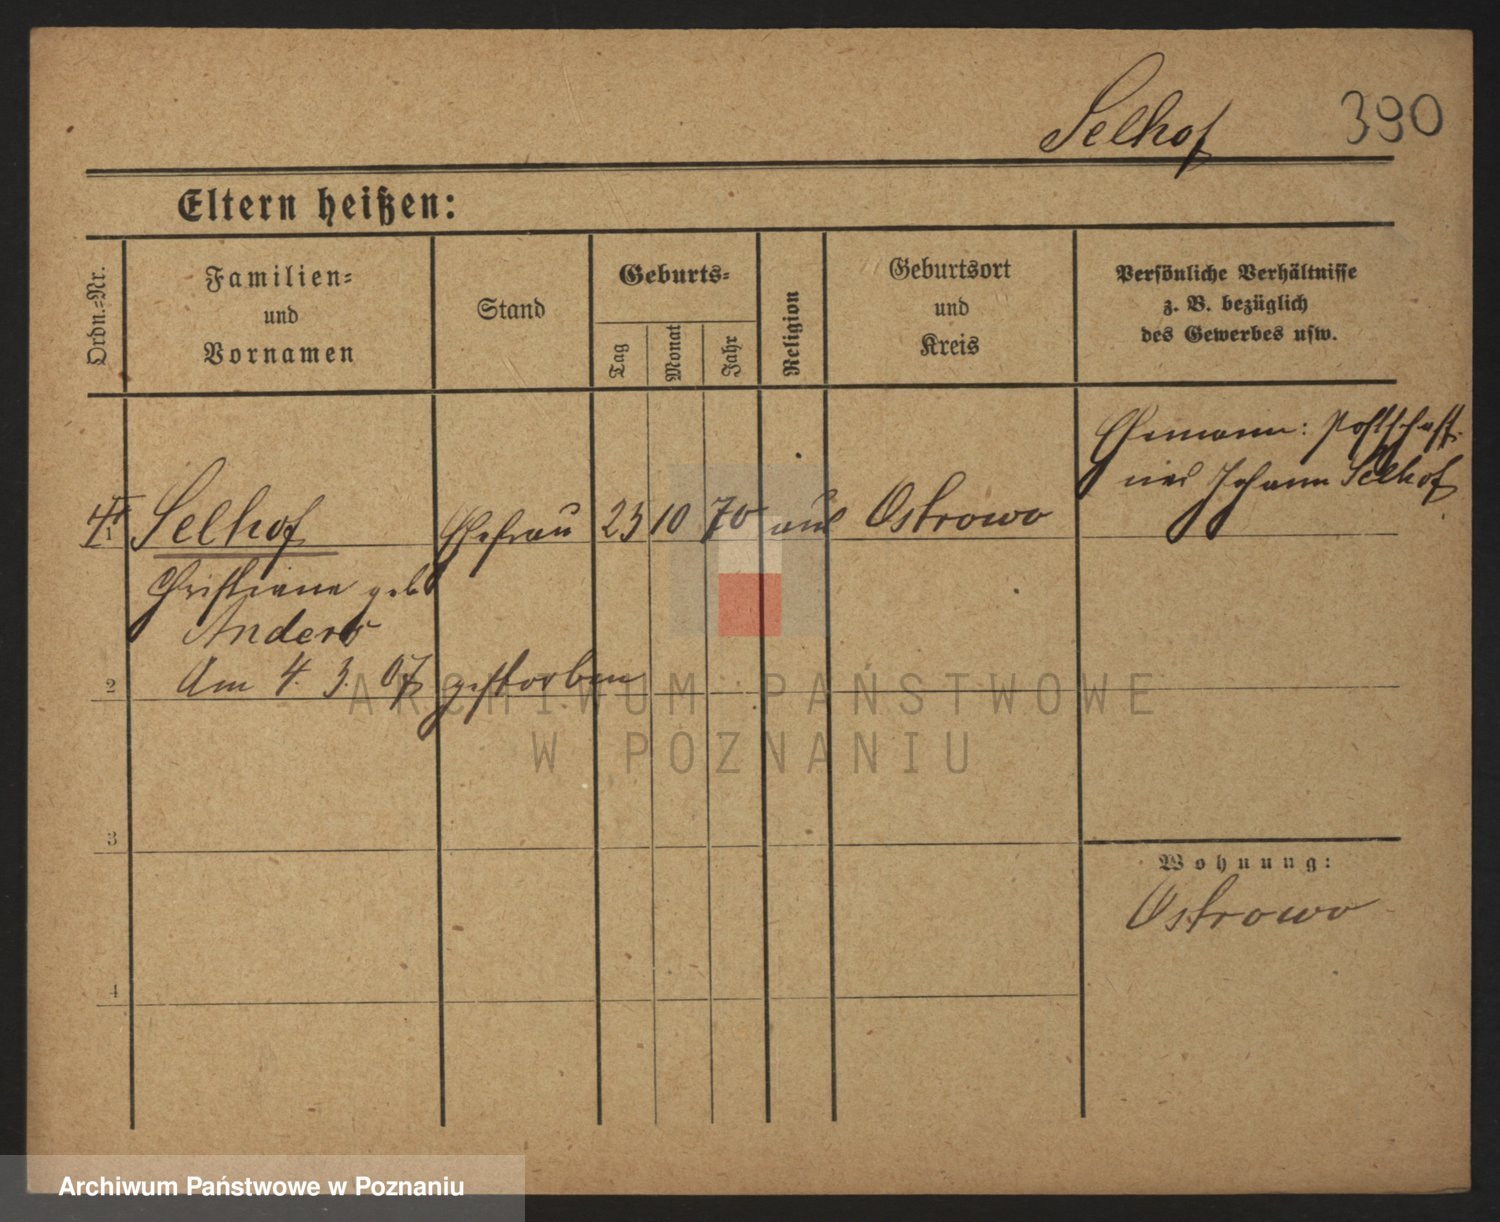 Selhof 390
Eltern heißen:
Ordn.=Nr.
Familien=
und
Vornamen
Stand
Geburts=
Tag
Monat
Jahr
Religion
Geburtsort
und
Kreis
Persönliche Verhältnisse
z. B. bezüglich
des Gewerbes usw.
Ehemann: Postschaff-
ner Johann Selhof
1 Selhof Ehefrau 23 10 70 aus Ostrowo
Christiane geb
Anders
2 Am 4. 3. 07 gestorben
3
4
Wohnung:
Ostrowo
ARCHIWUM PAŃSTWOWE
W POZNANIU
Archiwum Państwowe w Poznaniu